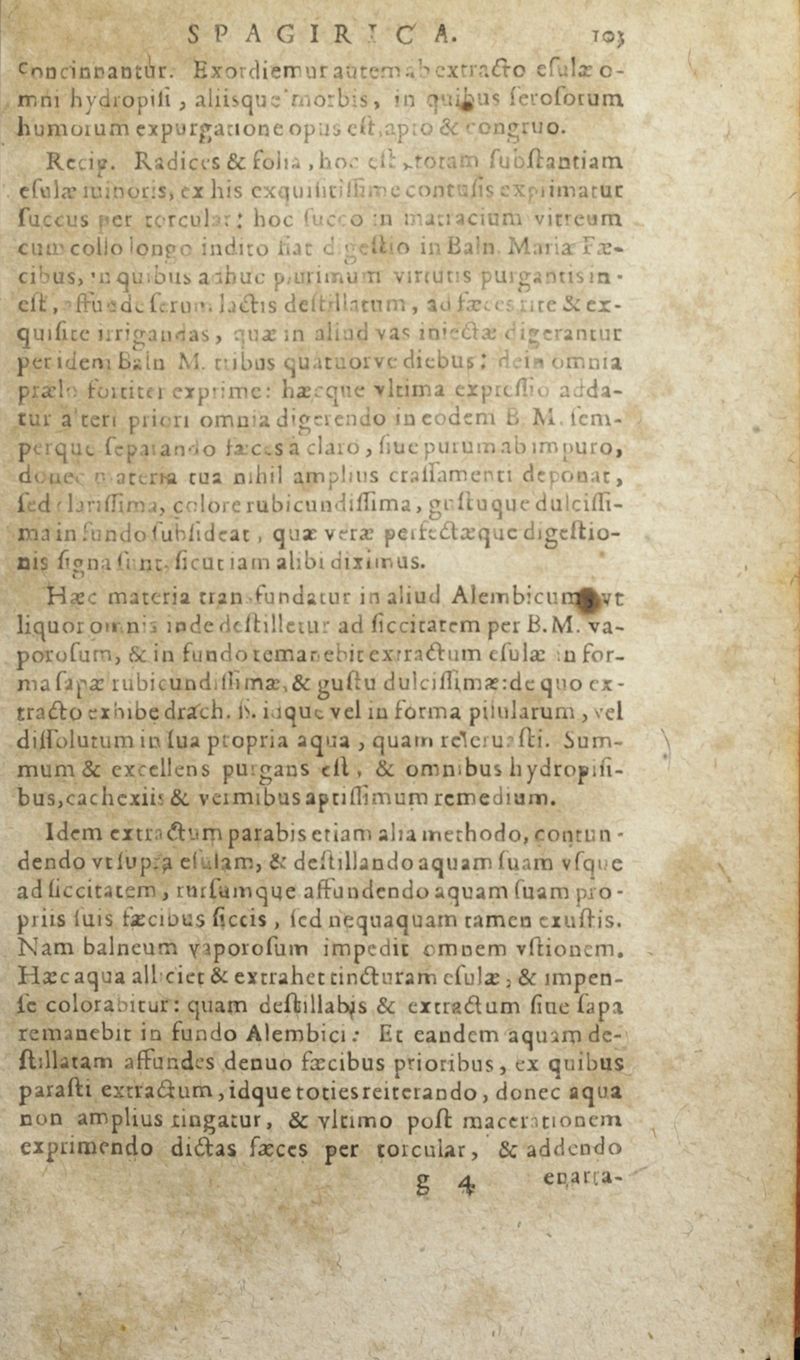 SPAGIRICA. 103
concinnantur. Exordiemur autem ab extracto esulæ o-
mni hydropisi, aliisque morbis, in quibus serosorum
humorum expurgatione opus est, apto & congruo.
Recip. Radices & folia, hoc est, totam substantiam
esulæ minoris, ex his exquisitissime contusis exprimatur
succus per torcular: hoc succo in matracium vitreum
cum collo longo indito fiat digestio in Baln. Mariæ. Fæ-
cibus, in quibus adhuc plurimum virtutis purgantis in-
est, affunde serum lactis destillatum, ad fæces rite & ex-
quisite irrigandas, quæ in aliud vas iniectæ digerantur
per idem Baln M. tribus quatuorve diebus: dein omnia
prælo fortiter exprime: hæcque vltima expressio adda-
tur alteri priori omnia digerendo in eodem B. M. sem-
perque separando fæces a claro, siue purum ab impuro,
donec materia tua nihil amplius crassamenti deponat,
sed clarissima, colore rubicundissima, gustuque dulcissi-
ma in fundo subsideat, quæ veræ perfectæque digestio-
nis signa sunt, sicut iam alibi diximus.
Hæc materia transfundatur in aliud Alembicum, vt
liquor omnis inde destilletur ad siccitatem per B. M. va-
porosum, & in fundo remanebit extractum esulæ in for-
ma sapæ rubicundissimæ, & gustu dulcissimæ: de quo ex-
tracto exhibe drach. ß. idque vel in forma pilularum, vel
dissolutum in sua propria aqua, quam reseruasti. Sum-
mum & excellens purgans est, & omnibus hydropisi-
bus, cachexiis & vermibus aptissimum remedium.
Idem extractum parabis etiam alia methodo, contun-
dendo vt supra esulam, & destillando aquam suam vsque
ad siccitatem, rursumque affundendo aquam suam pro-
priis suis fæcibus siccis, sed nequaquam tamen exustis.
Nam balneum vaporosum impedit omnem vstionem.
Hæc aqua alliciet & extrahet tincturam esulæ, & impen-
se colorabitur: quam destillabis & extractum siue sapa
remanebit in fundo Alembici: Et eandem aquam de-
stillatam affundes denuo fæcibus prioribus, ex quibus
parasti extractum, idque toties reiterando, donec aqua
non amplius tingatur, & vltimo post macerationem
exprimendo dictas fæces per torcular, & addendo
g 4 enarra-